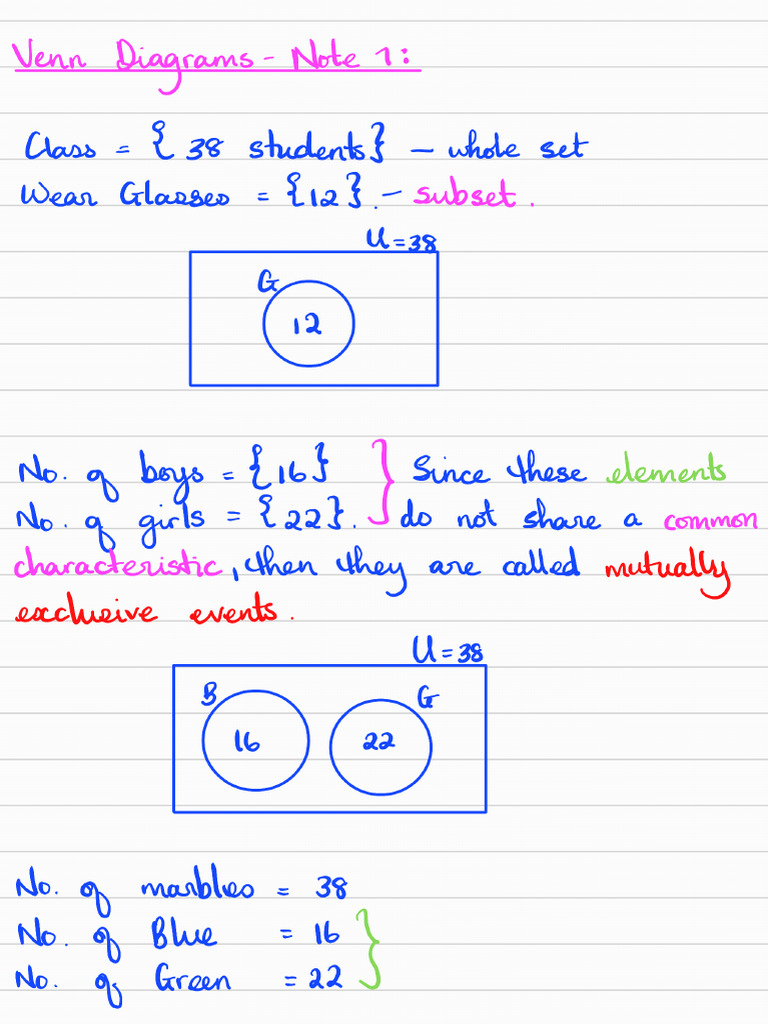 Venn Diagrams - Note 1:
Class = { 38 students} - whole set
Wear Glasses = {12}. - subset.
U = 38
G
12
No. of boys = {16} } Since these elements
No. of girls = {22}. do not share a common
characteristic, then they are called mutually
exclusive events.
U = 38
B G
16 22
No. of marbles = 38
No. of Blue = 16 }
No. of Green = 22